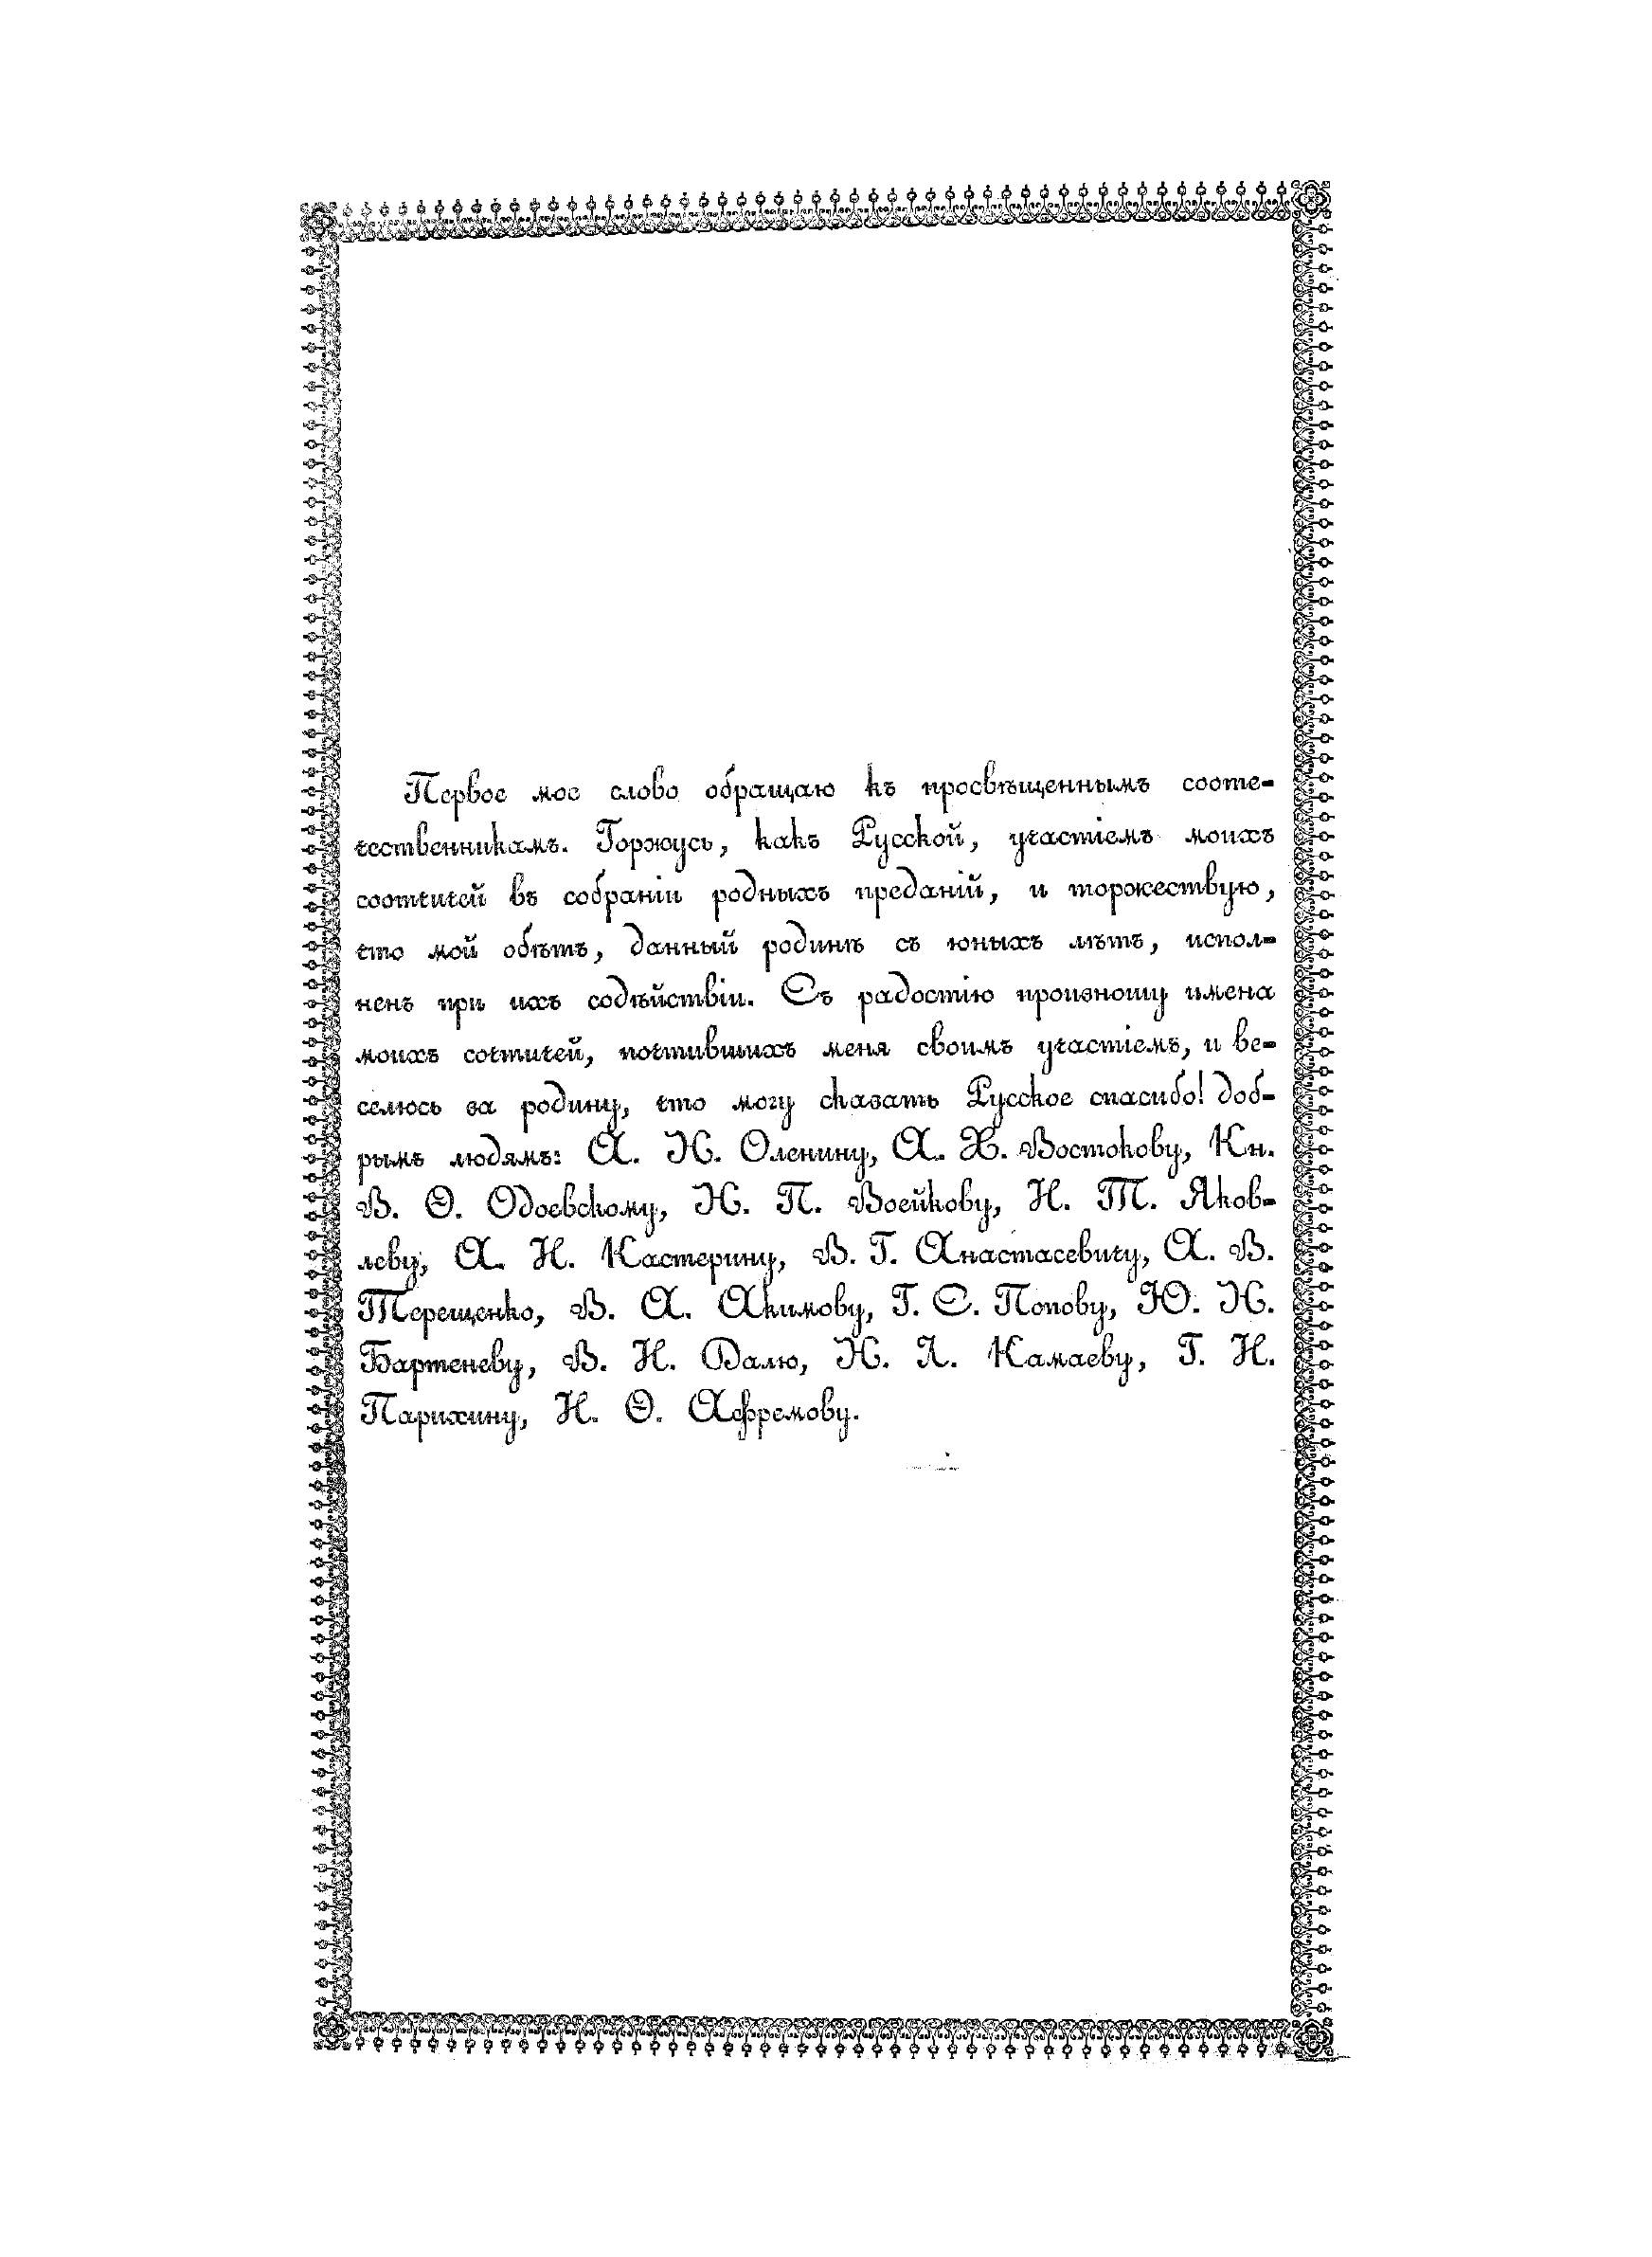 Первое мое слово обращаю къ просвѣщеннымъ сооте-
чественникамъ. Горжусь, какъ Русской, участіемъ моихъ
соотчичей въ собраніи родныхъ преданій, и торжествую,
что мой обѣтъ, данный родинѣ съ юныхъ лѣтъ, испол-
ненъ при ихъ содѣйствіи. Съ радостію произношу имена
моихъ сочтичей, почтившихъ меня своимъ участіемъ, и ве-
селюсь за родину, что могу сказать Русское спасибо! доб-
рымъ людямъ: А. Н. Оленину, А. Х. Востокову, Кн.
В. Ѳ. Одоевскому, Н. П. Воейкову, И. Т. Яков-
леву, А. И. Кастерину, В. Г. Анастасевичу, А. В.
Терещенко, В. А. Акимову, Г. С. Попову, Ю. Н.
Бартеневу, В. И. Далю, Н. Л. Камаеву, Г. И.
Парихину, И. Ѳ. Афремову.